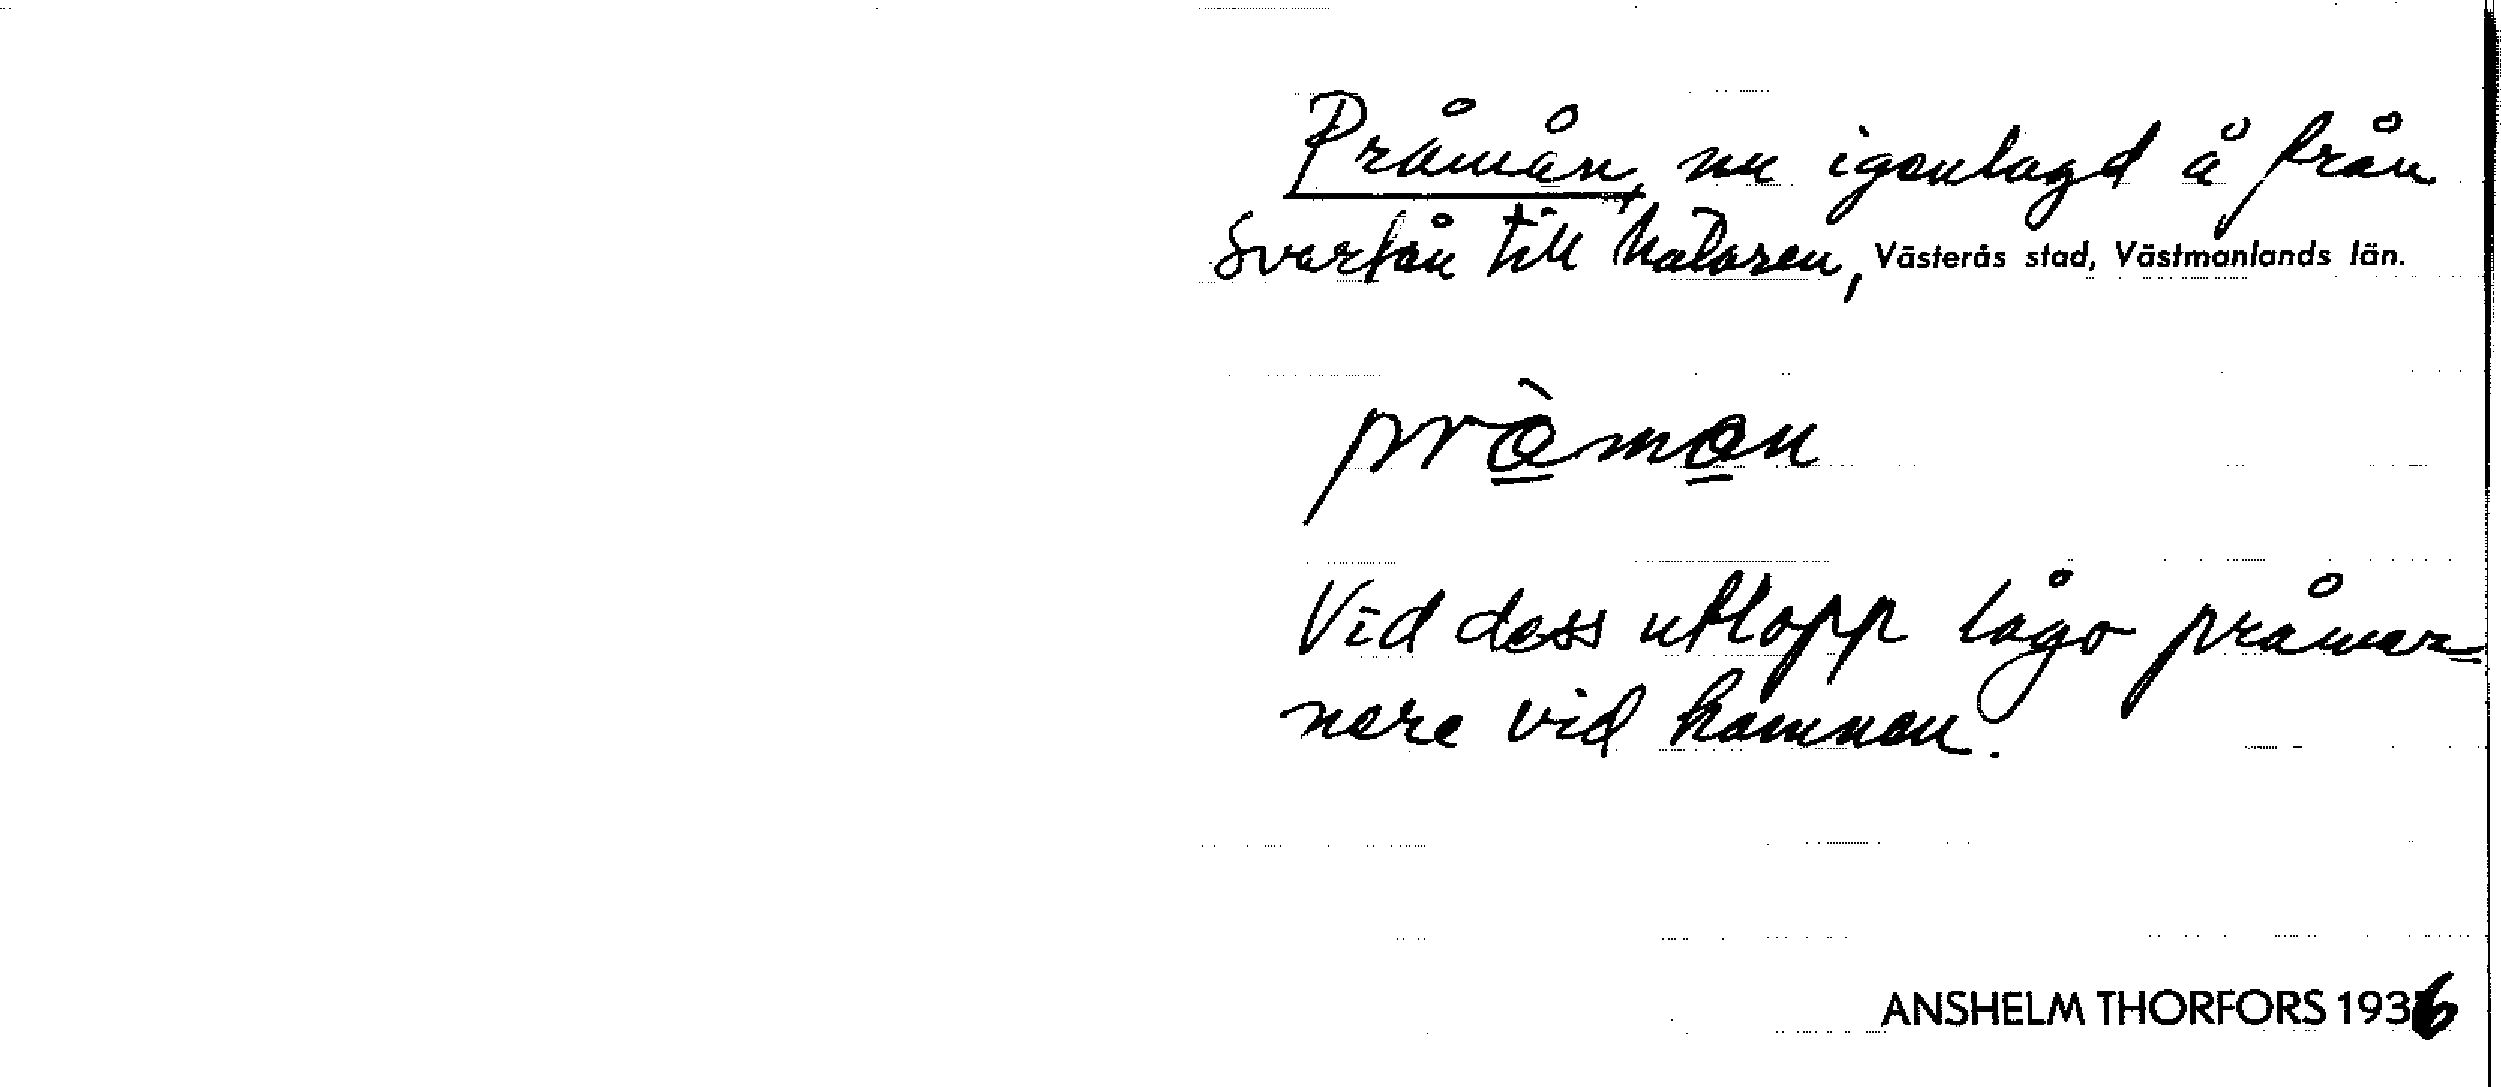 Pråmån, nu igenlagd å från
Svartån till Mälaren, Västerås stad, Västmanlands län.
prɷ̀mɷn
Vid dess utlopp lågo pråmar
nere vid hamnen.
ANSHELM THORFORS 1936